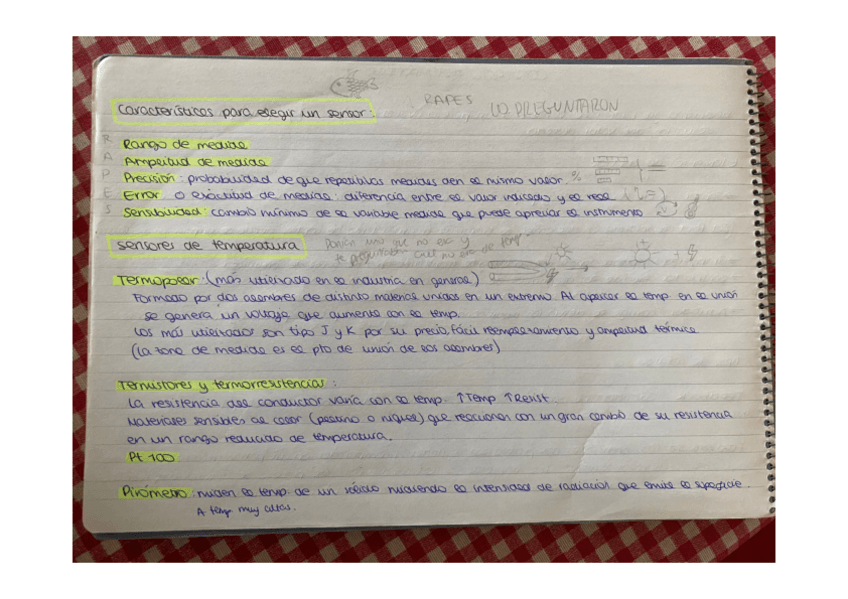 RAPES LO PREGUNTARON
Características para elegir un sensor:
R Rango de medida
A Amplitud de medida
P Precisión: probabilidad de que repetitivas medidas den el mismo valor. %
E Error o exactitud de medida: diferencia entre el valor indicado y el real
S Sensibilidad: cambio mínimo de la variable medida que puede apreciar el instrumento
Sensores de temperatura
Ponían uno que no era y
te preguntaban cual no era de temp.
Termopar: (más utilizado en la industria en general)
Formado por dos alambres de distinto material unidos en un extremo. Al aplicar la temp. en la unión
se genera un voltaje que aumenta con la temp.
Los más utilizados son tipo J y K por su precio, fácil reemplazamiento y amplitud térmica
(la zona de medida es el pto de unión de los alambres)
Termistores y termorresistencias:
La resistencia del conductor varía con la temp. ↑Temp ↑Resist.
Materiales sensibles al calor (platino o níquel) que reaccionan con un gran cambio de su resistencia
en un rango reducido de temperatura.
Pt 100
Pirómetro: miden la temp. de un sólido midiendo la intensidad de radiación que emite la superficie.
A temp muy altas.